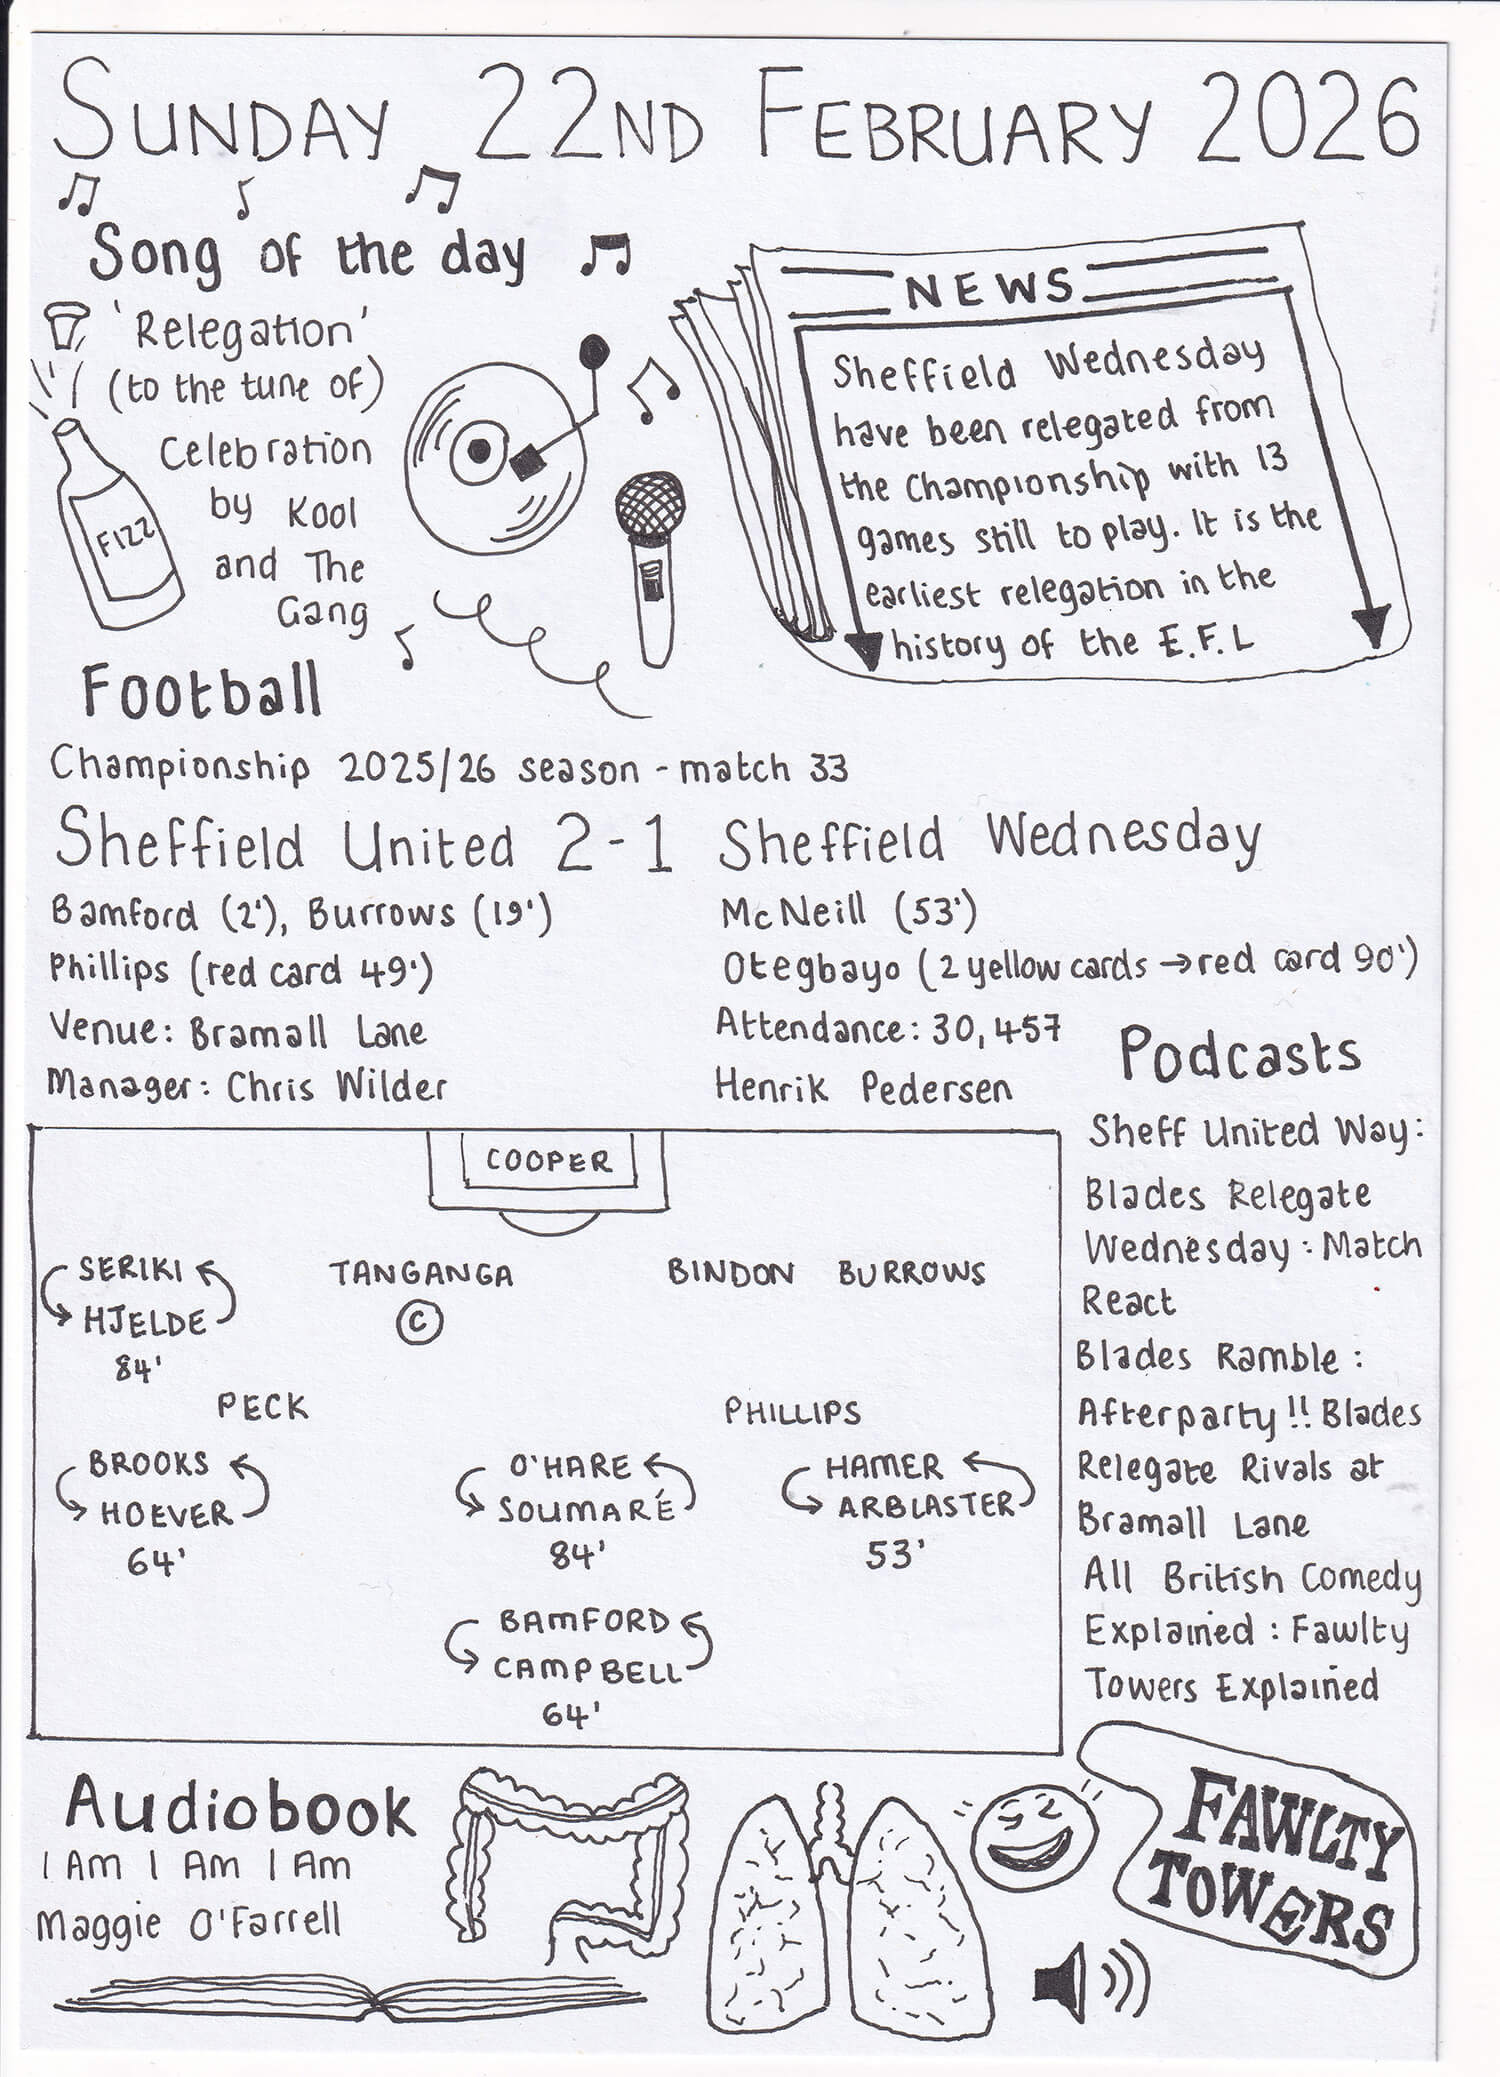 SUNDAY 22ND FEBRUARY 2026
Song of the day
'Relegation'
(to the tune of)
Celebration
by Kool
and The
Gang
FIZZ
NEWS
Sheffield Wednesday
have been relegated from
the Championship with 13
games still to play. It is the
earliest relegation in the
history of the E.F.L
Football
Championship 2025/26 season - match 33
Sheffield United 2-1 Sheffield Wednesday
Bamford (2'), Burrows (19')
McNeill (53')
Phillips (red card 49')
Otegbayo (2 yellow cards → red card 90')
Venue: Bramall Lane
Attendance: 30,457
Manager: Chris Wilder
Henrik Pedersen
COOPER
SERIKI
HJELDE
84'
TANGANGA
©
BINDON BURROWS
PECK
PHILLIPS
BROOKS
HOEVER
64'
O'HARE
SOUMARÉ
84'
HAMER
ARBLASTER
53'
BAMFORD
CAMPBELL
64'
Podcasts
Sheff United Way:
Blades Relegate
Wednesday : Match
React
Blades Ramble :
Afterparty!! Blades
Relegate Rivals at
Bramall Lane
All British Comedy
Explained : Fawlty
Towers Explained
Audiobook
I Am I Am I Am
Maggie O'Farrell
FAWLTY
TOWERS